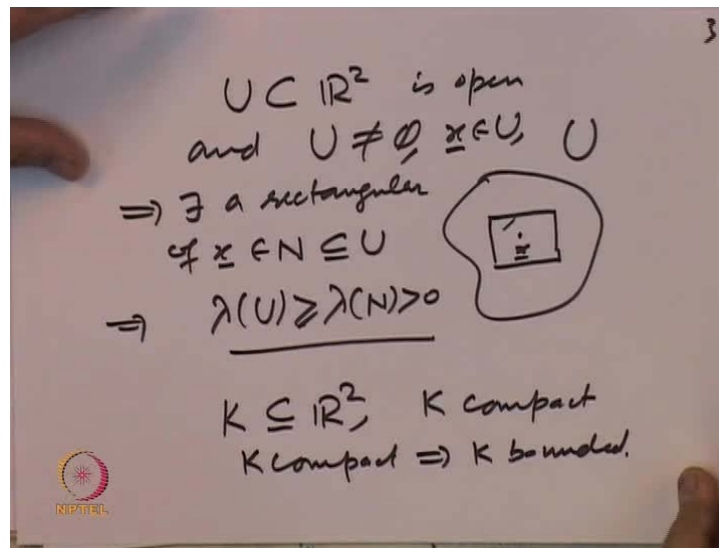 3
U ⊂ ℝ² is open
and U ≠ ∅, x ∈ U, U
⇒ ∃ a rectangular
of x ∈ N ⊆ U
x
⇒ λ(U) ≥ λ(N) > 0
K ⊆ ℝ², K compact
K compact ⇒ K bounded.
NPTEL